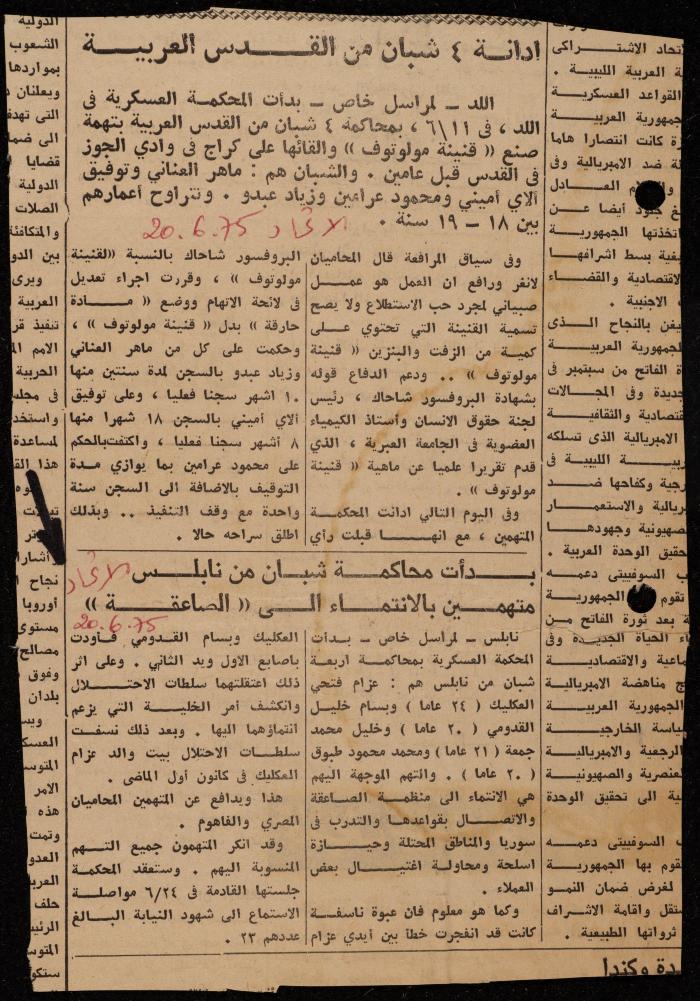 ادانة ٤ شبان من القدس العربية
اللد – لمراسل خاص – بدأت المحكمة العسكرية فى
اللد ، فى ٦/١١ ، بمحاكمة ٤ شبان من القدس العربية بتهمة
صنع « قنينة مولوتوف » والقائها على كراج فى وادي الجوز
فى القدس قبل عامين . والشبان هم : ماهر العناني وتوفيق
آلاي أميني ومحمود عرامين وزياد عبدو . وتتراوح أعمارهم
بين ١٨ – ١٩ سنة .
الاتحاد 20.6.75
وفى سياق المرافعة قال المحاميان
لانغر ورافع ان العمل هو عمل
صبياني لمجرد حب الاستطلاع ولا يصح
تسمية القنينة التي تحتوي على
كمية من الزفت والبنزين « قنينة
مولوتوف » .. ودعم الدفاع قوله
بشهادة البروفسور شاحاك ، رئيس
لجنة حقوق الانسان وأستاذ الكيمياء
العضوية فى الجامعة العبرية ، الذي
قدم تقريرا علميا عن ماهية « قنينة
مولوتوف » .
وفى اليوم التالي ادانت المحكمة
المتهمين ، مع انها قبلت رأي
البروفسور شاحاك بالنسبة «لقنينة
مولوتوف » ، وقررت اجراء تعديل
فى لائحة الاتهام ووضع « مادة
حارقة » بدل « قنينة مولوتوف » ،
وحكمت على كل من ماهر العناني
وزياد عبدو بالسجن لمدة سنتين منها
١٠ اشهر سجنا فعليا ، وعلى توفيق
آلاي أميني بالسجن ١٨ شهرا منها
٨ أشهر سجنا فعليا ، واكتفت بالحكم
على محمود عرامين بما يوازي مدة
التوقيف بالاضافة الى السجن سنة
واحدة مع وقف التنفيذ .. وبذلك
اطلق سراحه حالا .
بدأت محاكمة شبان من نابلس
متهمين بالانتماء الى « الصاعقة »
الاتحاد
20.6.75
نابلس – لمراسل خاص – بدأت
المحكمة العسكرية بمحاكمة اربعة
شبان من نابلس هم : عزام فتحي
العكليك ( ٢٤ عاما ) وبسام خليل
القدومي ( ٢٠ عاما ) وخليل محمد
جمعة ( ٢١ عاما ) ومحمد محمود طبوق
( ٢٠ عاما ) . والتهم الموجهة اليهم
هي الانتماء الى منظمة الصاعقة
والاتصال بقواعدها والتدرب فى
سوريا والمناطق المحتلة وحيازة
اسلحة ومحاولة اغتيال بعض
العملاء .
وكما هو معلوم فان عبوة ناسفة
كانت قد انفجرت خطأ بين أيدي عزام
العكليك وبسام القدومي فأودت
باصابع الاول ويد الثاني . وعلى اثر
ذلك اعتقلتهما سلطات الاحتلال
وانكشف أمر الخلية التي يزعم
انتماؤهما اليها . وبعد ذلك نسفت
سلطات الاحتلال بيت والد عزام
العكليك فى كانون أول الماضى .
هذا ويدافع عن المتهمين المحاميان
المصري والفاهوم .
وقد انكر المتهمون جميع التهم
المنسوبة اليهم . وستعقد المحكمة
جلستها القادمة فى ٦/٢٤ مواصلة
الاستماع الى شهود النيابة البالغ
عددهم ٢٣ .
تحاد الاشتراكى
ة العربية الليبية .
القواعد العسكرية
جمهورية العربية
ة كانت انتصارا هاما
ة ضد الامبريالية وفى
العادل
أيضا عن
تخذتها الجمهورية
يفية بسط اشرافها
لاقتصادية والقضاء
الاجنبية .
يفن بالنجاح الذى
لجمهورية العربية
ة الفاتح من سبتمبر فى
جديدة وفى المجالات
قتصادية والثقافية
الامبريالية الذى تسلكه
ربية الليبية فى
رجية وكفاحها ضد
ريالية والاستعمار
صهيونية وجهودها
حقيق الوحدة العربية .
ب السوفييتى دعمه
تقوم الجمهورية
ة بعد ثورة الفاتح من
اء الحياة الجديدة وفى
ماعية والاقتصادية
ج مناهضة الامبريالية
لجمهورية العربية
ياسة الخارجية
الرجعية والامبريالية
لعنصرية والصهيونية
ية الى تحقيق الوحدة
ب السوفييتى دعمه
قوم بها الجمهورية
لغرض ضمان النمو
ستقل واقامة الاشراف
ثرواتها الطبيعية .
دة وكندا
الدولية
الشعوب
بمواردها
ويعلنان
التى تهدف
الى ضما
قضايا
الدولية
الصلات
والمتكافئة
بين الدو
ويرى
العربية
تنفيذ قر
الامم الم
الحربية
فى مجل
واستخد
لمساعدة
هذا الق
وأشار
نجاح ا
أوروبا
مستوى
مصالح
وفوق
بلدان
ويس
العسك
المتوس
الامر
هذه
وتمت
العدو
العرب
حلف
الرئي
المتوس
ستكو